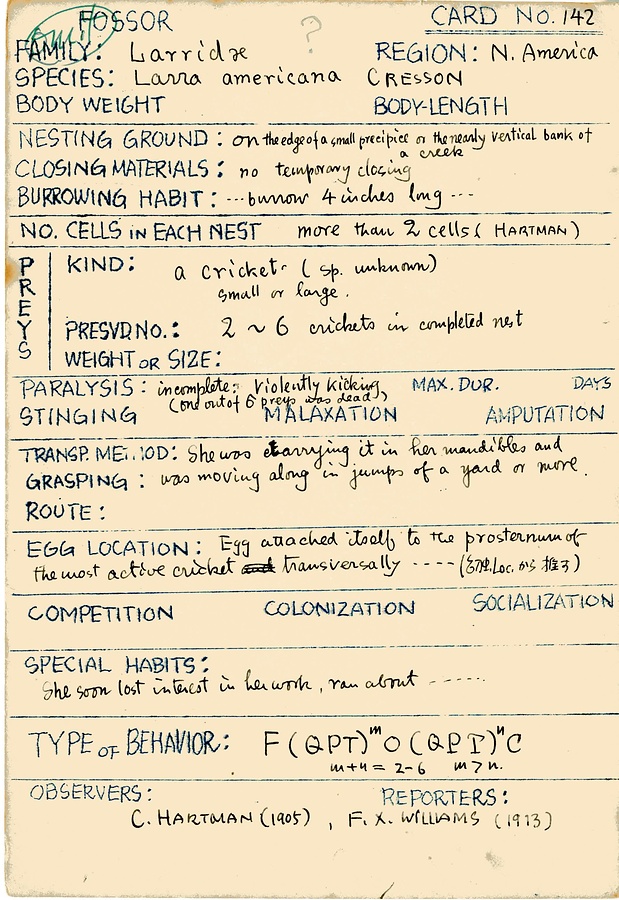 FOSSOR ? CARD No. 142
omit
FAMILY: Larridæ REGION: N. America
SPECIES: Larra americana CRESSON
BODY WEIGHT BODY-LENGTH
NESTING GROUND: on the edge of a small precipice or the nearly vertical bank of
a creek
CLOSING MATERIALS: no temporary closing
BURROWING HABIT: ---burrow 4 inches long ---
NO. CELLS IN EACH NEST more than 2 cells ( HARTMAN )
PREYS
KIND: a cricket ( sp. unknown)
small or large.
PRESVD NO.: 2 ~ 6 crickets in completed nest
WEIGHT OR SIZE:
PARALYSIS: incomplete: violently kicking, MAX. DUR. DAYS
(one out of 6 preys was dead)
STINGING MALAXATION AMPUTATION
TRANSP. METHOD: She was carrying it in her mandibles and
GRASPING: was moving along in jumps of a yard or more.
ROUTE:
EGG LOCATION: Egg attached itself to the prosternum of
the most active cricket and transversally ---- ( Loc. から推す)
COMPETITION COLONIZATION SOCIALIZATION
SPECIAL HABITS:
She soon lost interest in her work, ran about ------
TYPE OF BEHAVIOR: F (QPT)ᵐ O (QPT)ⁿ C
m+n = 2-6 m>n.
OBSERVERS: REPORTERS:
C. HARTMAN (1905) , F. X. WILLIAMS (1913)